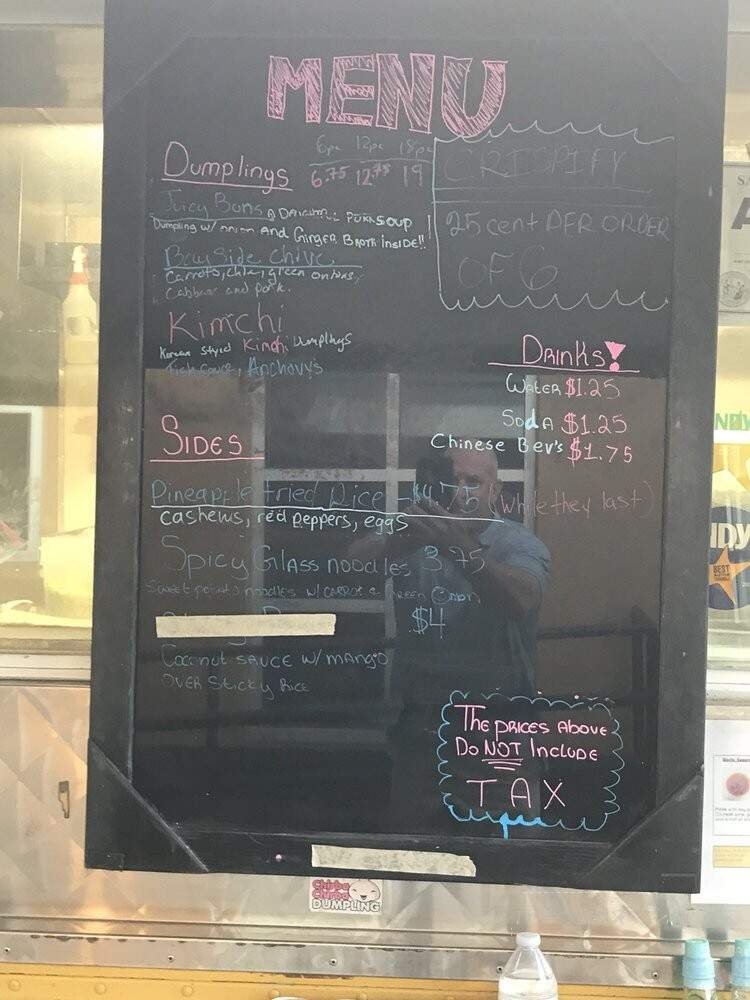 MENU
6pc 12pc 18pc
Dumplings 6.75 12.75 19
Juicy Buns A PORK SOUP
Dumpling w/ onion And Ginger Broth inside!!
Bayside Chive
Carrots, green onions,
Cabbage and pork.
Kimchi
Korean Styled Kimchi Dumplings
Fish sauce, Anchovy's
CRISPIFY
25 cent PER ORDER
OF 6
Drinks!
Water $1.25
Soda $1.25
Chinese Bev's $1.75
Sides
Pineapple fried Rice - $4.75 (while they last)
cashews, red peppers, eggs
Spicy Glass noodles 3.75
Sweet potato noodles w/ carrot & Green Onion
$4
Coconut sauce w/ mango
over Sticky Rice
The prices Above
Do NOT Include
TAX
DUMPLING
BEST